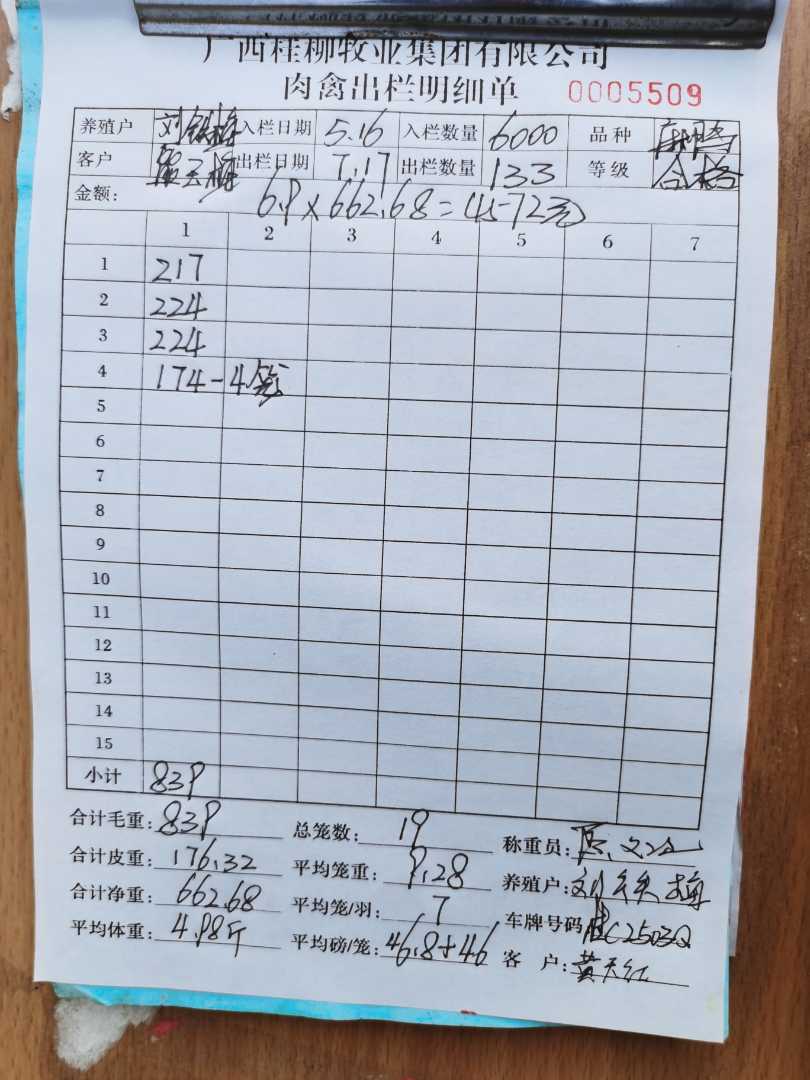 广西桂柳牧业集团有限公司
肉禽出栏明细单 0005509
养殖户 刘铁梅 入栏日期 5.16 入栏数量 6000 品种
客户 出栏日期 7.17 出栏数量 133 等级 合格
金额: 6.9×662.68=4572元
1 2 3 4 5 6 7
1 217
2 224
3 224
4 174-4笼
5
6
7
8
9
10
11
12
13
14
15
小计 839
合计毛重: 839 总笼数: 19 称重员:
合计皮重: 176.32 平均笼重: 9.28 养殖户: 刘铁梅
合计净重: 662.68 平均笼/羽: 7 车牌号码 C2503Q
平均体重: 4.98斤 平均磅/笼: 46.8+46 客户: 黄天红